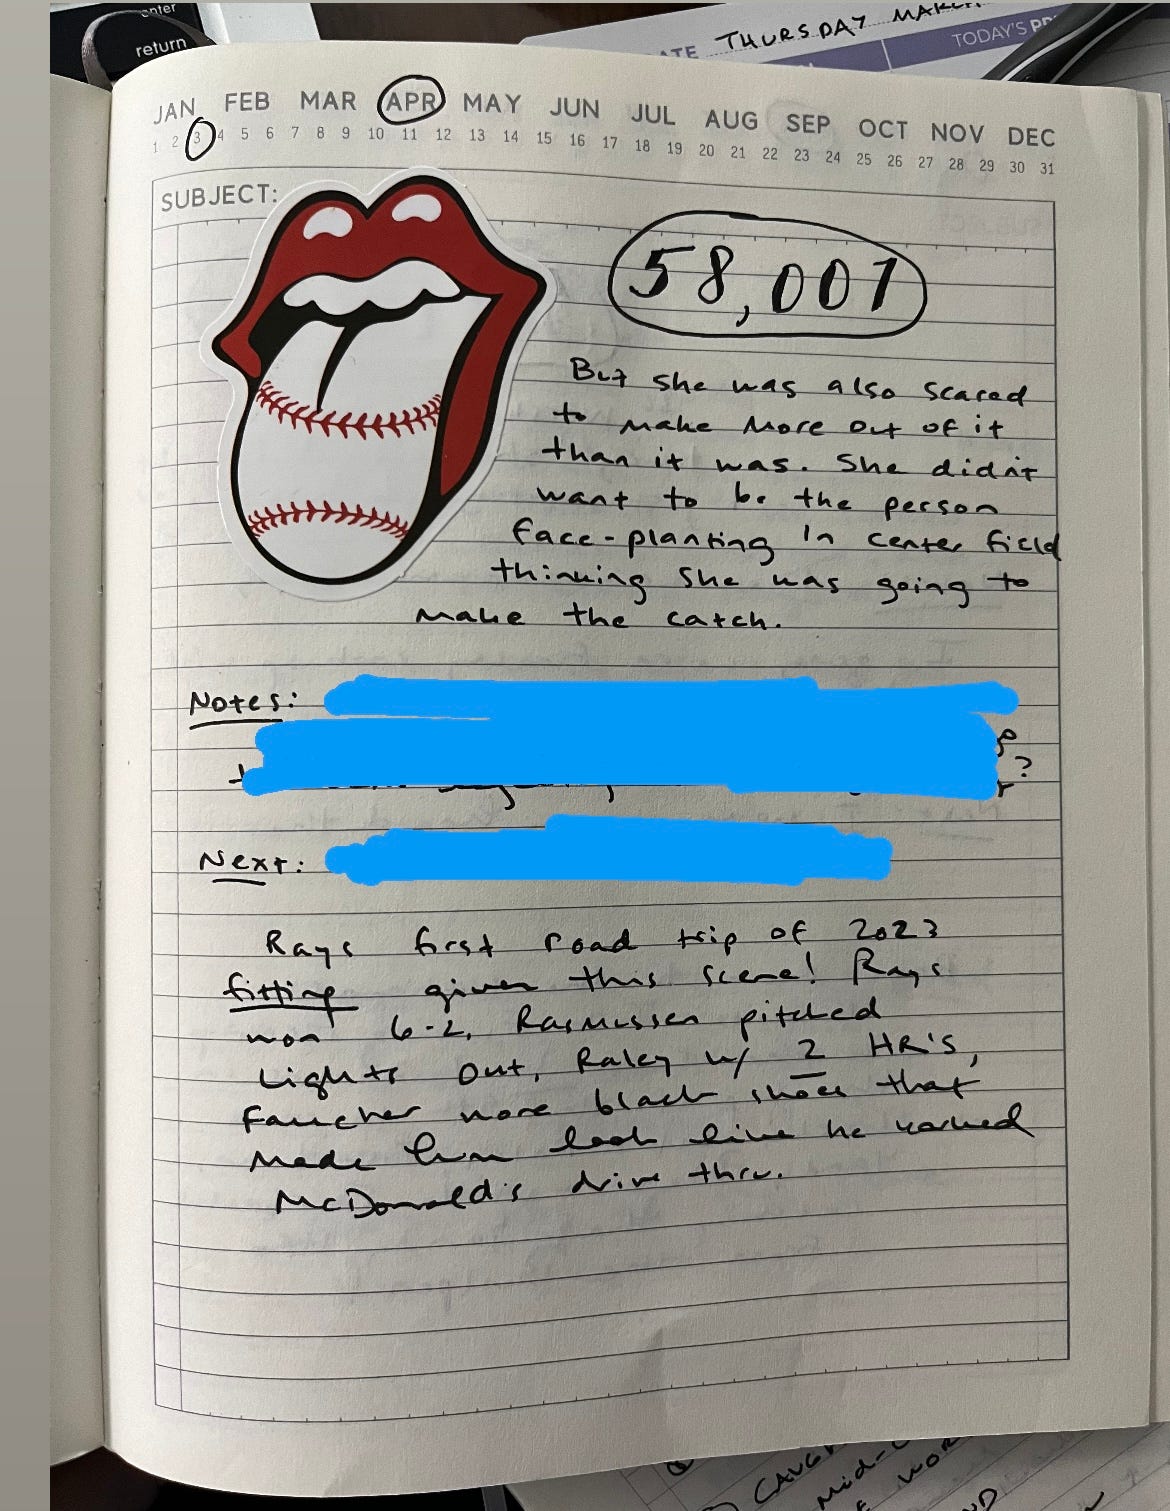 enter
return
ATE THURSDAY MARCH
TODAY'S PR
JAN FEB MAR APR MAY JUN JUL AUG SEP OCT NOV DEC
1 2 3 4 5 6 7 8 9 10 11 12 13 14 15 16 17 18 19 20 21 22 23 24 25 26 27 28 29 30 31
SUBJECT:
58,007
But she was also scared
to make more out of it
than it was. She didn't
want to be the person
face-planting in center field
thinking she was going to
make the catch.
Notes:
?
Next:
Rays first road trip of 2023
fitting given this scene! Rays
won 6-2, Rasmussen pitched
Lights Out, Raley w/ 2 HR's,
Faucher wore black shoes that
made him look like he worked
McDonald's drive thru.
CAUGH
Mid-
WOR